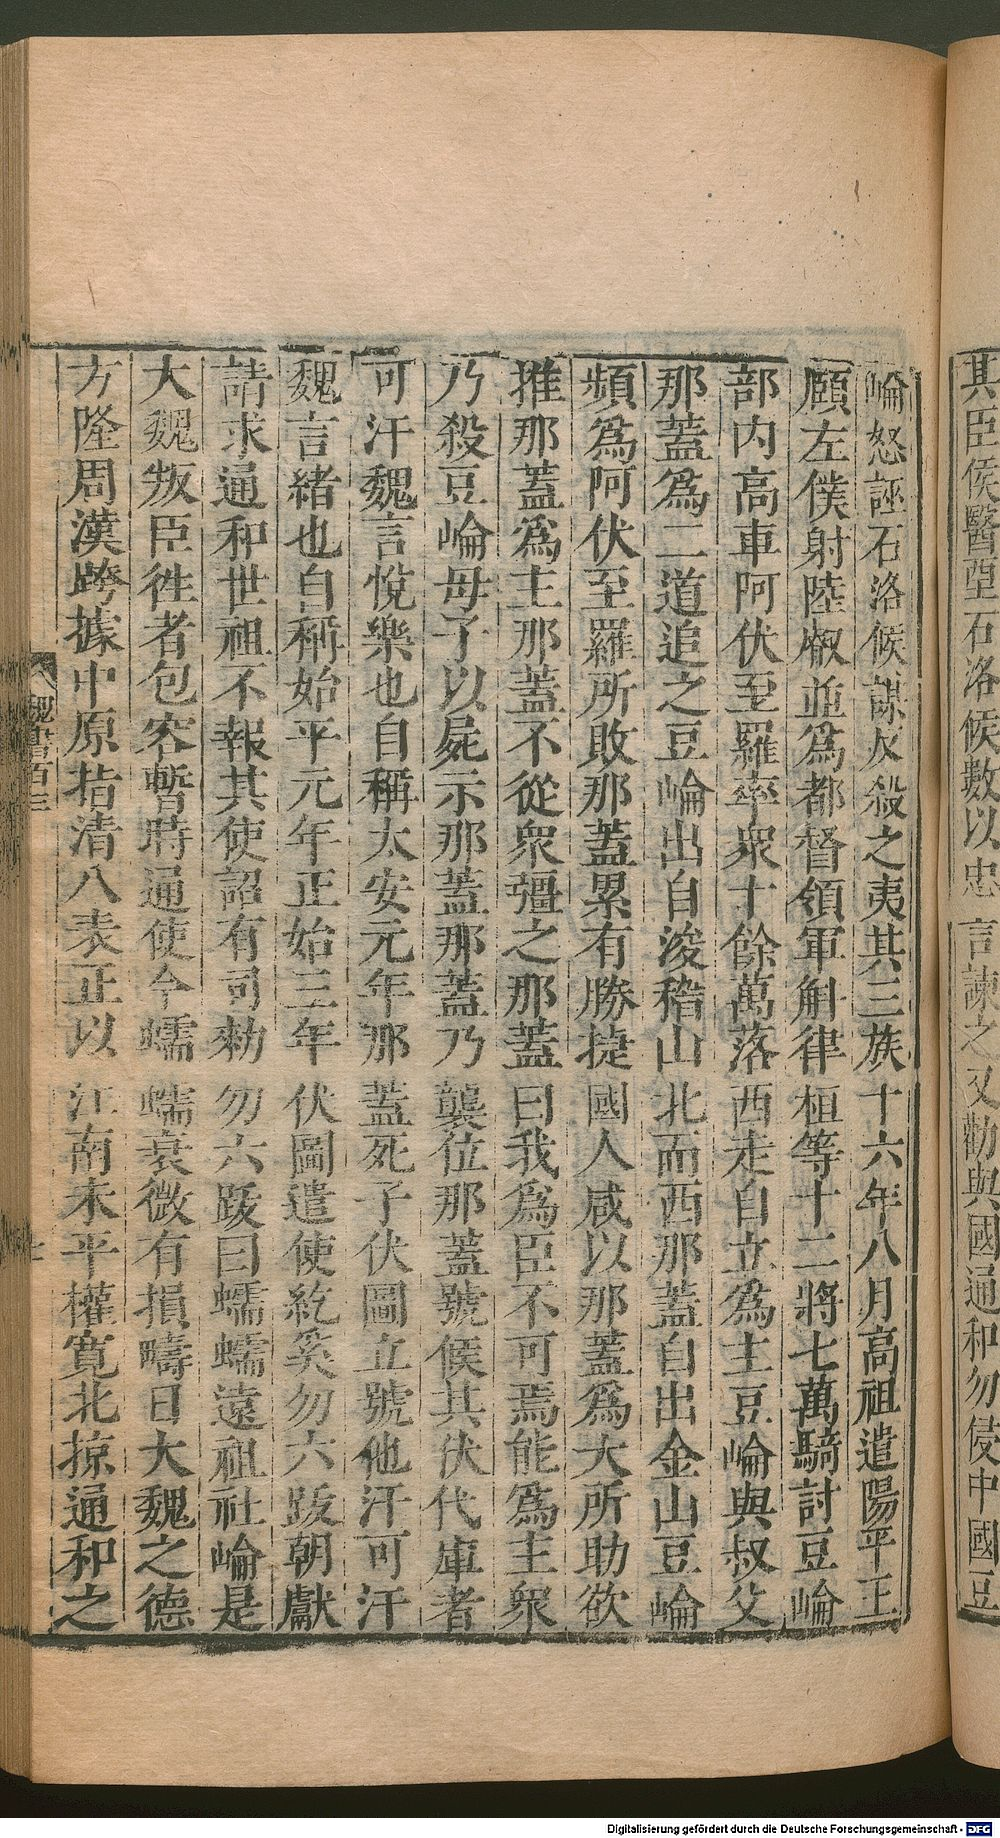 其臣侯醫垔石洛候數以忠言諫之又勸與國通和勿侵中國豆
崘怒誣石洛候謀反殺之夷其三族十六年八月高祖遣陽平王
頤左僕射陸叡並爲都督領軍斛律桓等十二將七萬騎討豆崘
部内高車阿伏至羅率衆十餘萬落西走自立爲主豆崘與叔父
那蓋爲二道追之豆崘出自浚稽山北而西那蓋自出金山豆崘
頻爲阿伏至羅所敗那蓋累有勝捷國人咸以那蓋爲天所助欲
推那蓋爲主那蓋不從衆彊之那蓋曰我爲臣不可焉能爲主衆
乃殺豆崘母子以屍示那蓋那蓋乃襲位那蓋號候其伏代庫者
可汗魏言悅樂也自稱太安元年那蓋死子伏圖立號他汗可汗
魏言緒也自稱始平元年正始三年伏圖遣使紇奚勿六跋朝獻
請求通和世祖不報其使詔有司勑勿六跋曰蠕蠕遠祖社崘是
大魏叛臣徃者包容暫時通使今蠕蠕衰微有損疇日大魏之德
方隆周漢跨據中原指清八表正以江南未平權寛北掠通和之
魏書百三